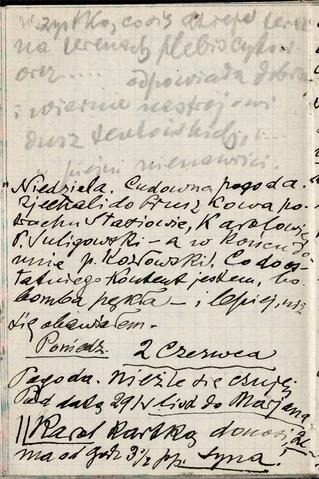 wszystko, co się dzieje teraz
na terenach plebiscytow.
oraz .... odpowiada dobrze
i wiernie nastrojowi
dusz teutońskich,
pieśni nienawiści.
"Niedziela. Cudowna pogoda.
Zjechali do Kruszkowa po-
Stasiowie, Karolowie
P. Suligowski – a w końcu do
mnie p. Kozłowski. Co do os-
tatniego kontent jestem, bo
bomba pękła – i lepiej, niż
się obawiałem.
Poniedz. 2 Czerwca
Pogoda. Nieźle się czuję.
Pod datą 29/V list do Marjana
|| Karol kartką donosi, że
ma od godz 3½ pp. syna.